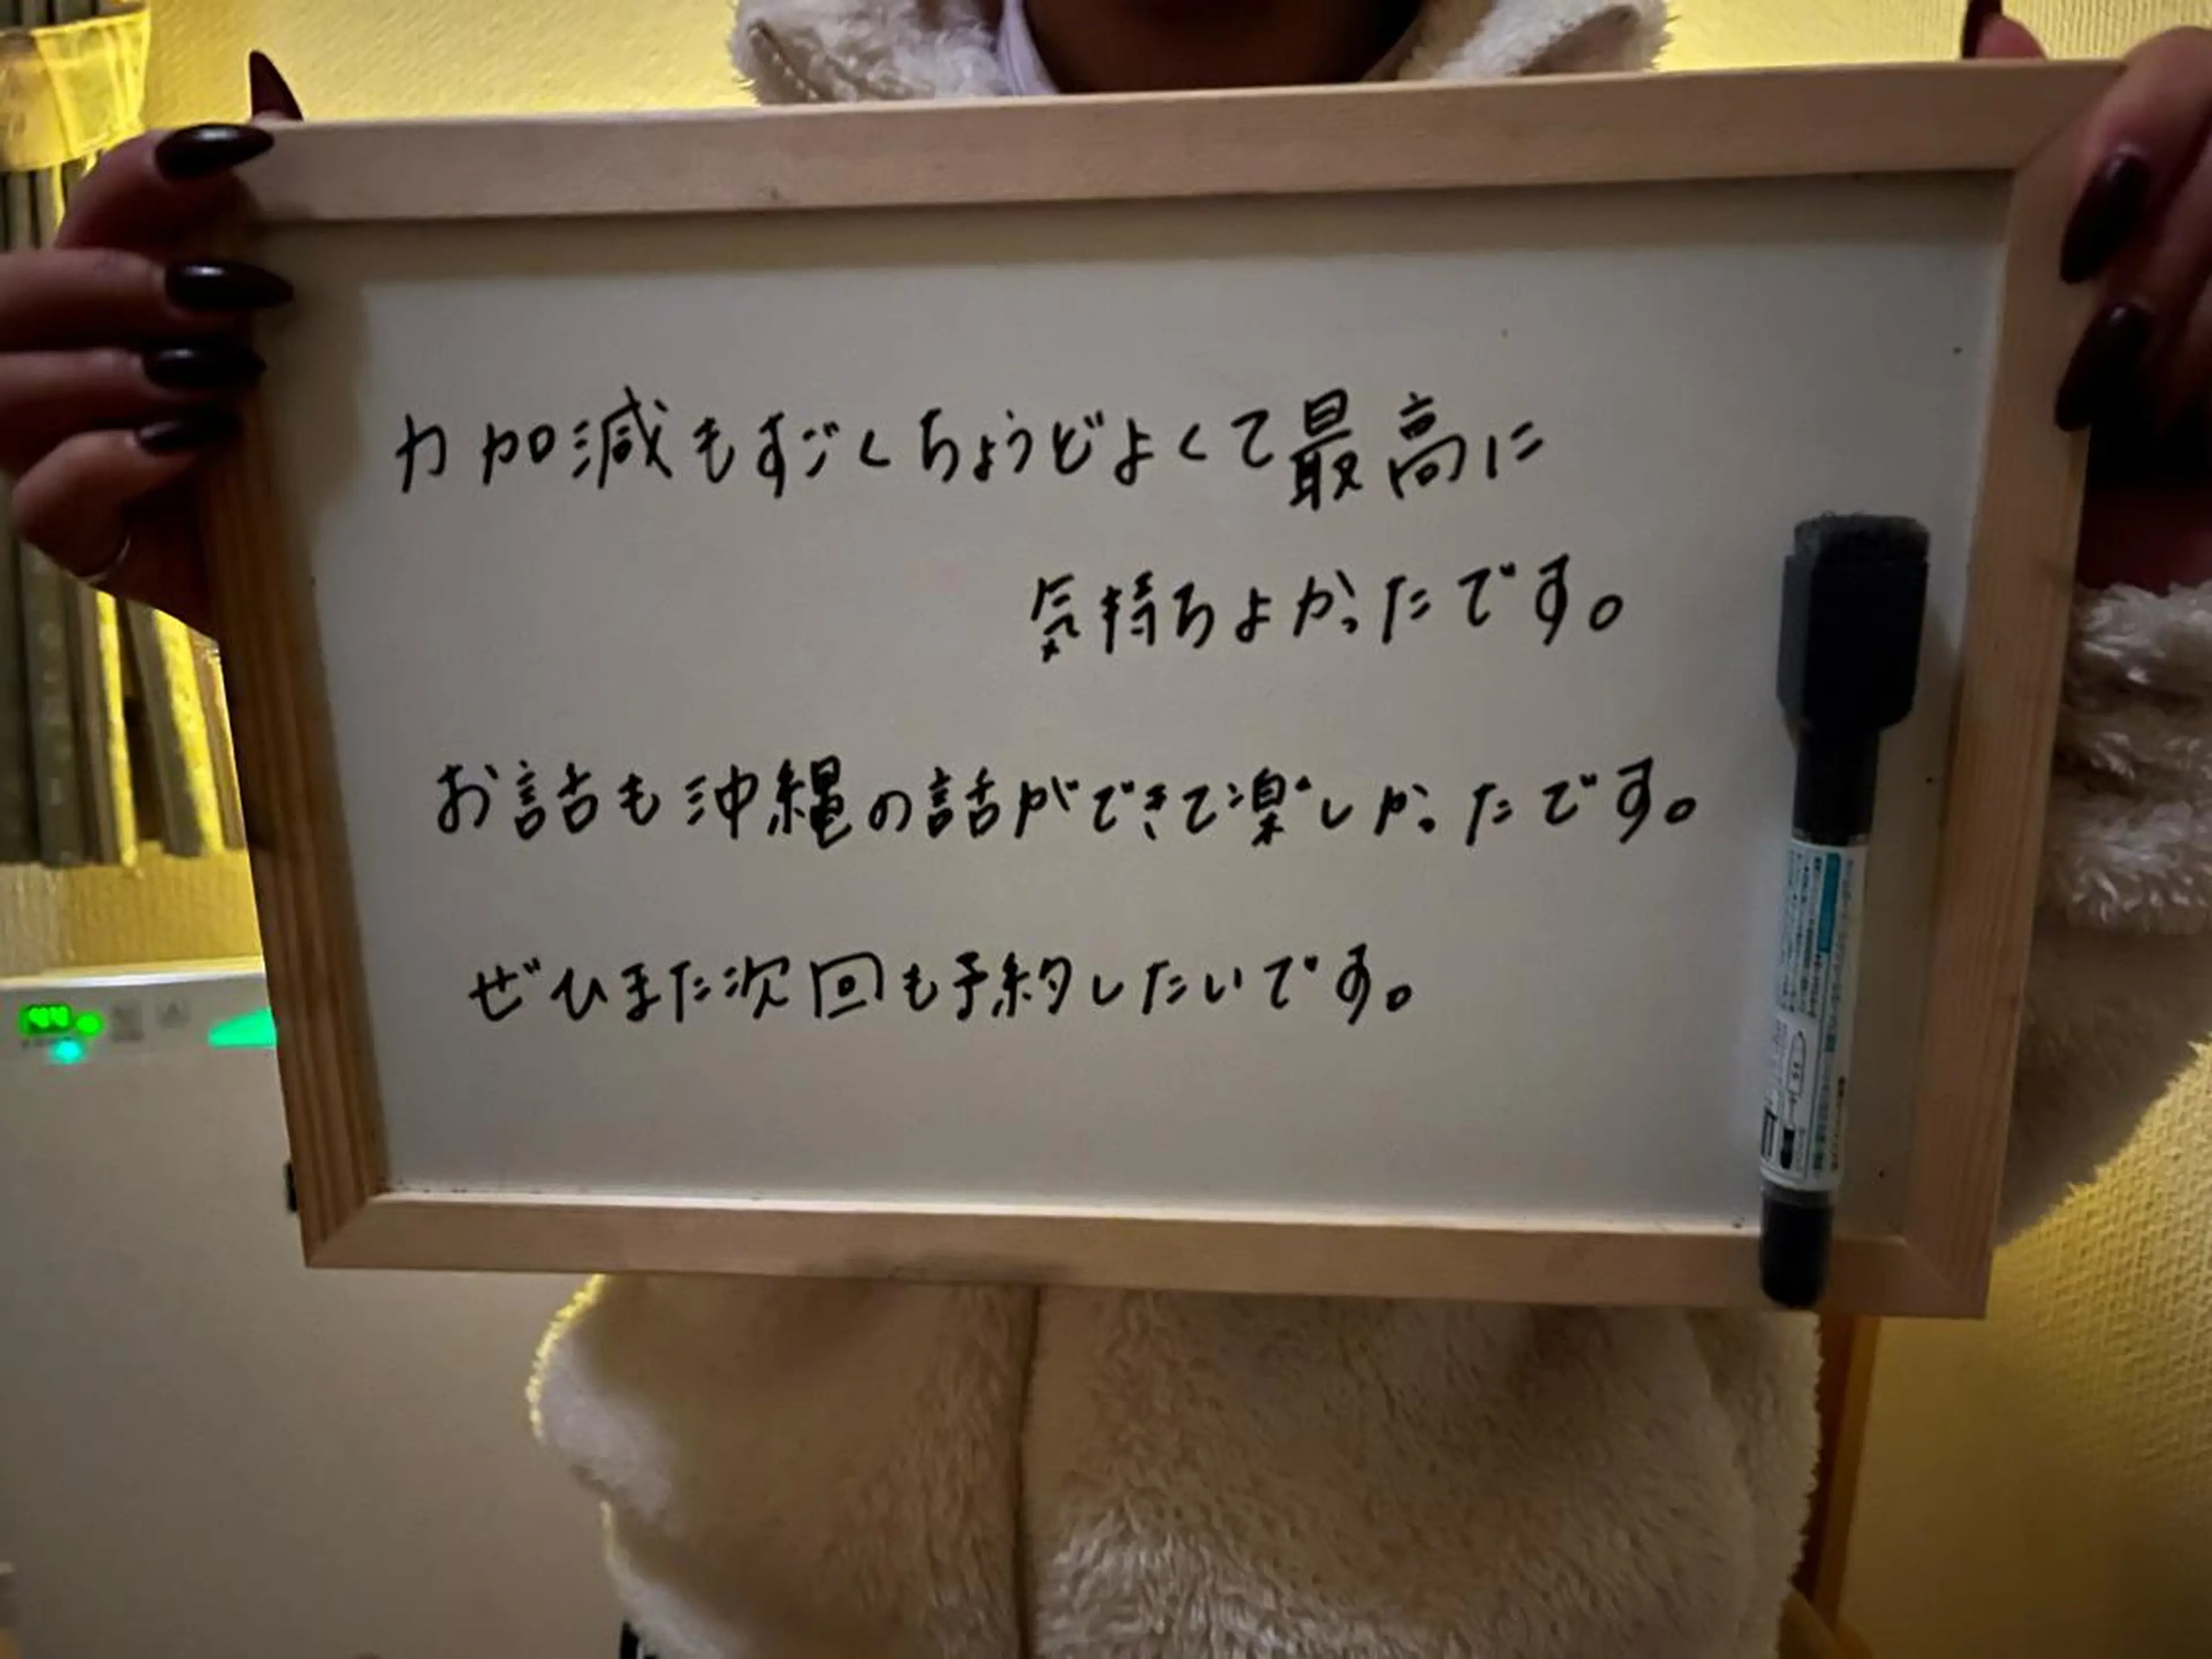 力加減もすごくちょうどよくて最高に
気持ちよかったです。
お話も沖縄の話ができて楽しかったです。
ぜひまた次回も予約したいです。
44